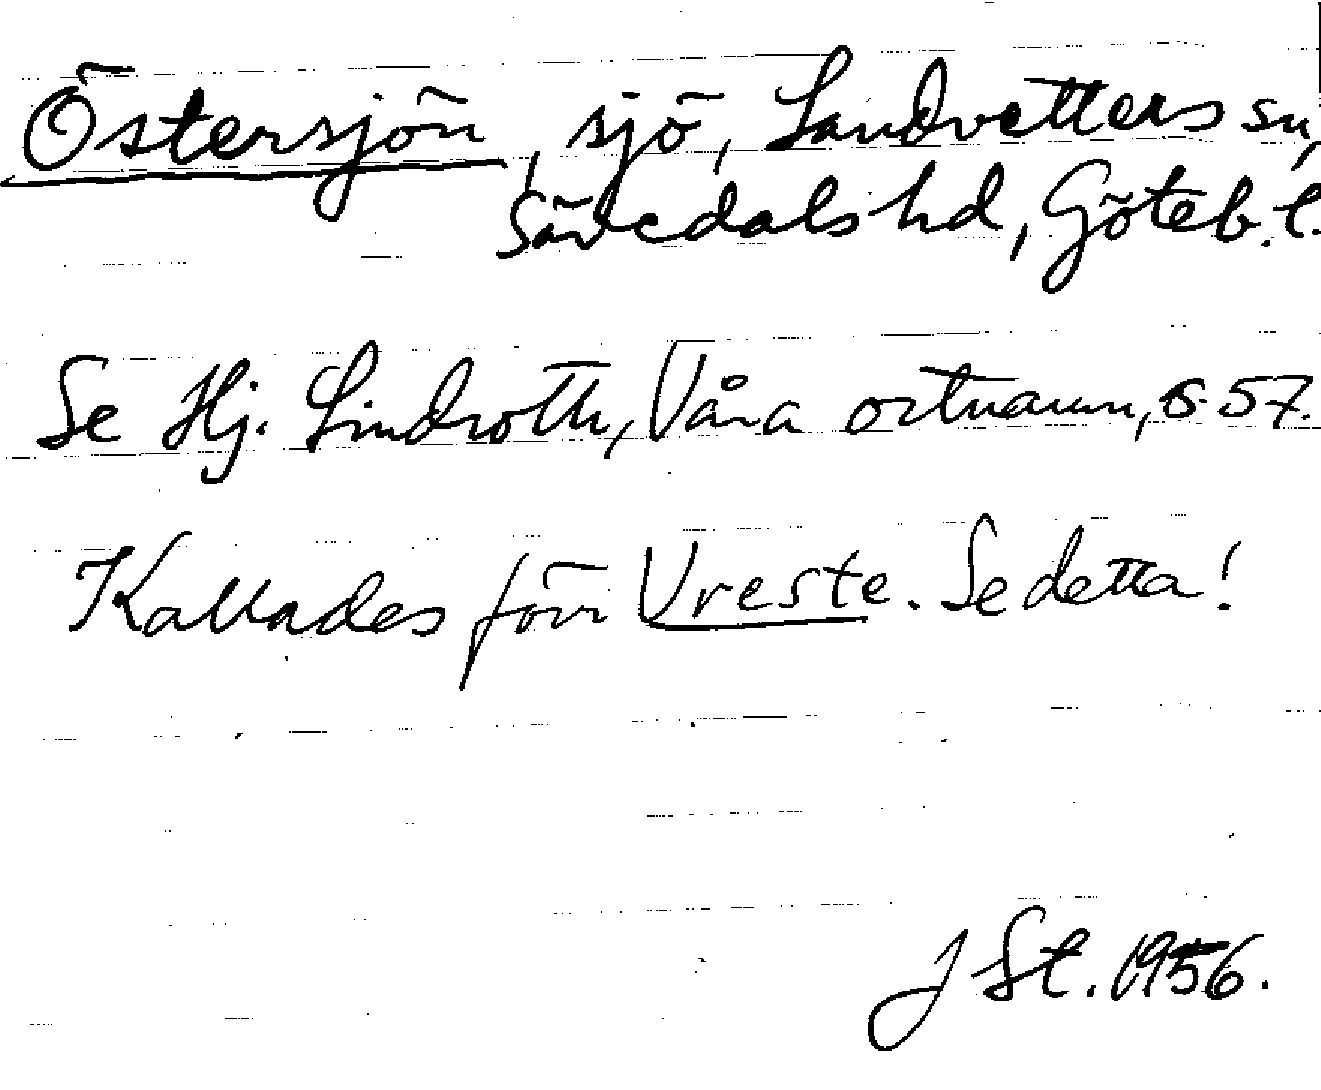 Östersjön, sjö, Landvetters sn,
Sävedals hd, Göteb. l.
Se Hj. Lindroth, Våra ortnamn, s. 57.
Kallades förr Vreste. Se detta!
J St. 1956.